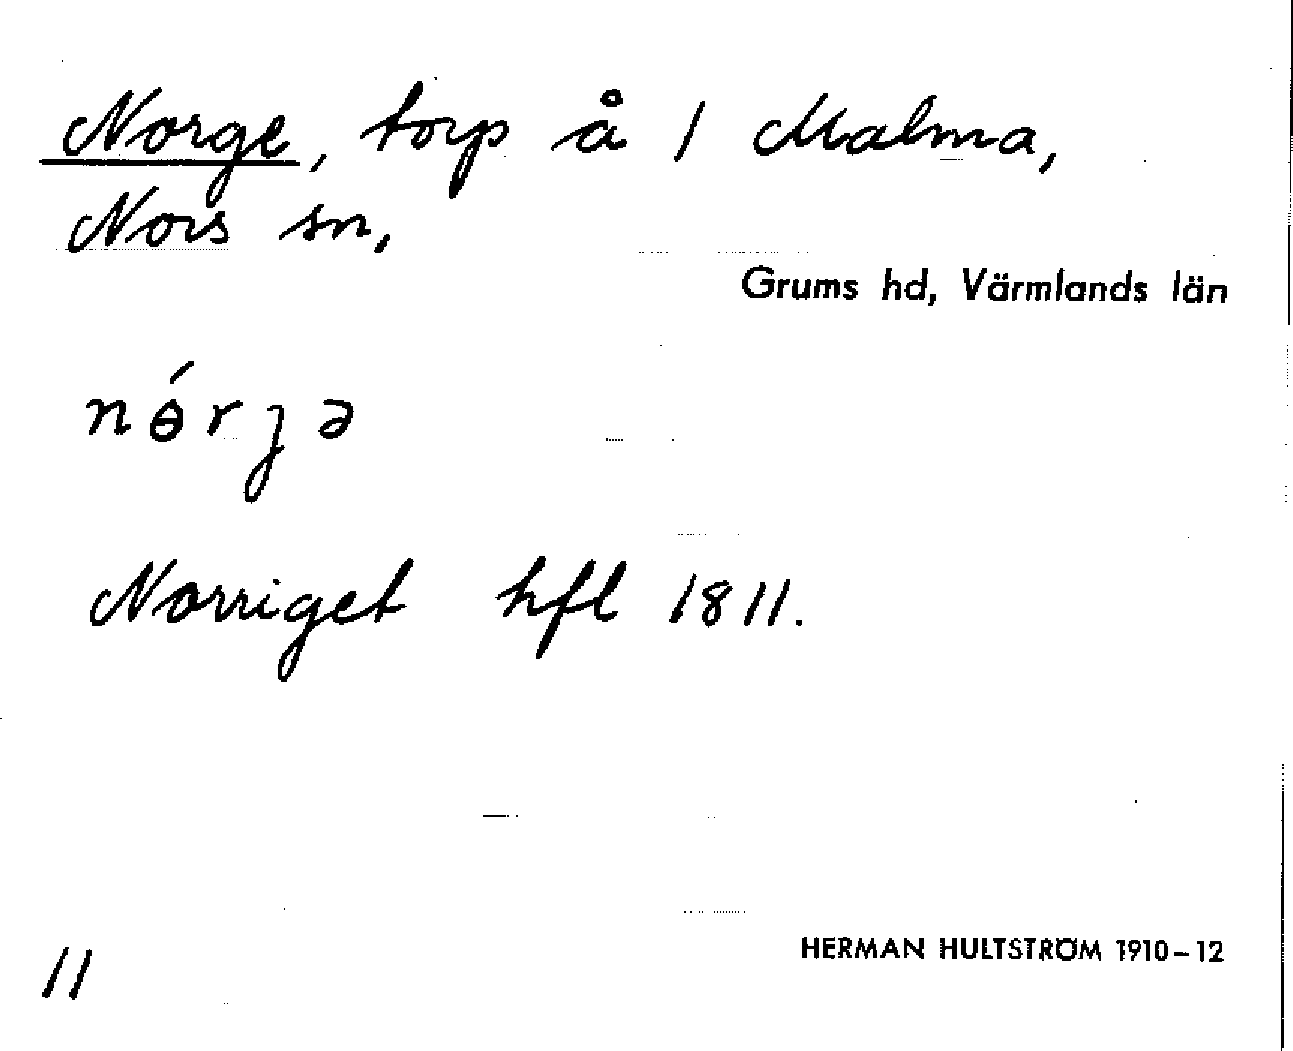 Norge, torp å 1 Malma,
Nors sn,
Grums hd, Värmlands län
nɵ́rȷə
Norriget hfl 1811.
11
HERMAN HULTSTRÖM 1910-12